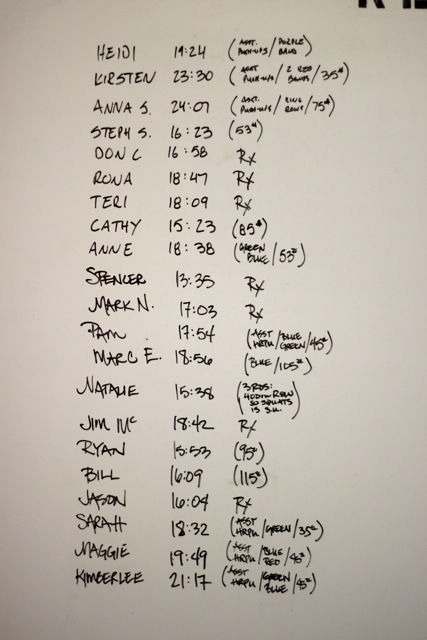 HEIDI 19:24 (ASST. PUSH-UPS / PURPLE BAND)
KIRSTEN 23:30 (ASST PUSH-UPS / 2 RED BANDS / 35#)
ANNA S. 24:07 (ASST. PUSH-UPS / RING ROWS / 75#)
STEPH S. 16:23 (53#)
DON C 16:58 Rx
RONA 18:47 Rx
TERI 18:09 Rx
CATHY 15:23 (85#)
ANNE 18:38 (GREEN BLUE / 53#)
SPENCER 13:35 Rx
MARK N. 17:03 Rx
PAM 17:54 (ASST HRPU / BLUE GREEN / 45#)
MARC E. 18:56 (BLUE / 105#)
NATALIE 15:38 (3 RDS: 400m ROW 50 SQUATS 15 S.U.)
JIM Mc 18:42 Rx
RYAN 15:53 (95#)
BILL 16:09 (115#)
JASON 16:04 Rx
SARAH 18:32 (ASST HRPU / GREEN / 35#)
MAGGIE 19:49 (ASST HRPU / BLUE RED / 45#)
KIMBERLEE 21:17 (ASST HRPU / GREEN BLUE / 45#)